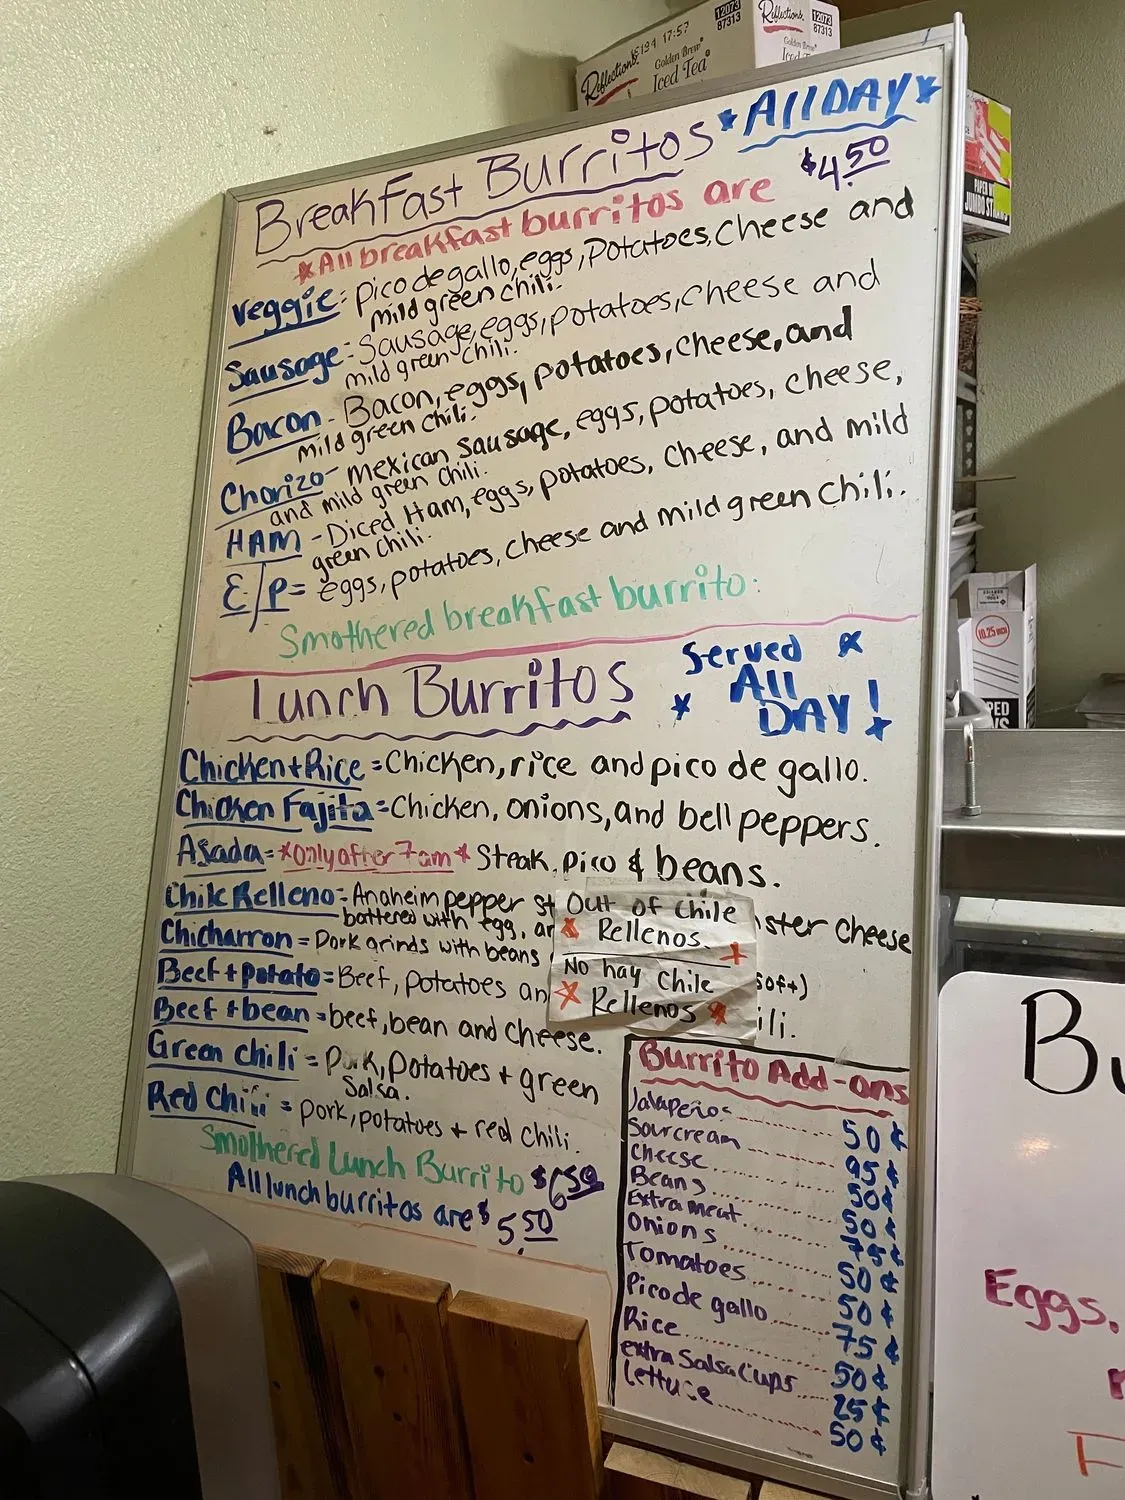 Reflections
5194 17:57
Golden Brew
Iced Tea
12073
87313
Reflections
Golden Brew
12073
87313
BreakFast Burritos *All DAY*
*All breakfast burritos are $4.50
Veggie: pico de gallo, eggs, potatoes, cheese and
mild green chili.
Sausage: Sausage, eggs, potatoes, cheese and
mild green chili.
Bacon - Bacon, eggs, potatoes, cheese, and
mild green chili.
Chorizo - mexican sausage, eggs, potatoes, cheese,
and mild green chili.
HAM - Diced Ham, eggs, potatoes, cheese, and mild
green chili.
E/P = eggs, potatoes, cheese and mild green chili.
Smothered breakfast burrito:
Lunch Burritos
Served *
* All
DAY! *
Chicken + Rice = Chicken, rice and pico de gallo.
Chicken Fajita = Chicken, onions, and bell peppers.
Asada = *only after 7am* Steak, pico & beans.
Chile Relleno = Anaheim pepper st
ster cheese
battered with egg, ar
Chicharron = Pork grinds with beans
soft)
Beef + potato = Beef, potatoes an
ili.
Beef + bean = beef, bean and cheese.
Green chili = Pork, potatoes + green
Salsa.
Red Chili = pork, potatoes + red chili.
Smothered Lunch Burrito $6.50
All lunch burritos are $5.50
Out of Chile
* Rellenos. *
No hay Chile
* Rellenos *
Burrito Add-ons
Jalapeños 50¢
Sour cream 95¢
Cheese 50¢
Beans 50¢
Extra meat 75¢
Onions 50¢
Tomatoes 50¢
Pico de gallo 75¢
Rice 50¢
extra Salsa Cups 25¢
Lettuce 50¢
JUMBO
10.25 INCH
Bu
Eggs,
F